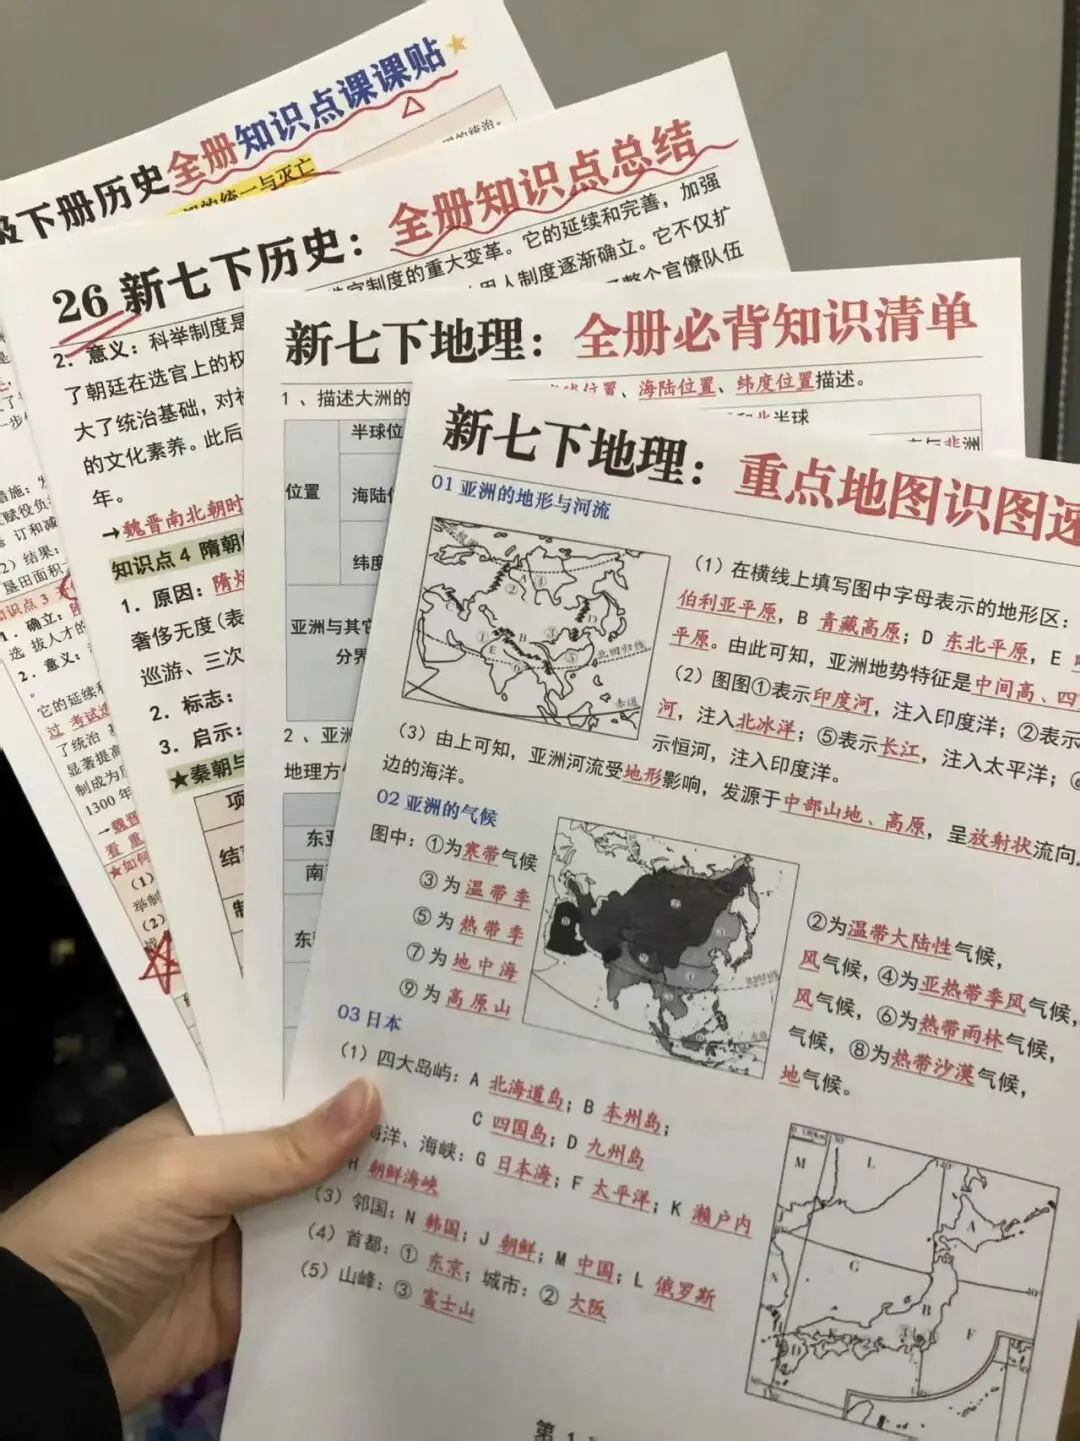 下册历史全册知识点课课贴
统一与灭亡
的统治。
26新七下历史：全册知识点总结
官制度的重大变革。它的延续和完善，加强
用人制度逐渐确立。它不仅扩
整个官僚队伍
2. 意义：科举制度是
了朝廷在选官上的权
大了统治基础，对社
的文化素养。此后
年。
→魏晋南北朝时
知识点4 隋朝
1. 原因：隋炀
奢侈无度(表
巡游、三次
2. 标志：
3. 启示：
★秦朝与
项
结
制
措施：
赋役负
订和减
2）结果：
垦田面积
知识点3
1. 确立：
选 拔人才的
2. 意义：
它的延续和
过 考试选
了统治
显著提高
制成为
1300年
→魏晋
看 重
★如何
（1）
举制
（2）
新七下地理：全册必背知识清单
1、描述大洲的
位置、海陆位置、纬度位置描述。
半球位
和北半球
位置
海陆位
非洲
纬度
亚洲与其它
分界
2、亚洲
地理方
东亚
南
东
新七下地理：重点地图识图速
01 亚洲的地形与河流
A
②
④
B
D
①
③
E
⑤
6
北回归线
赤道
（1）在横线上填写图中字母表示的地形区：
伯利亚平原，B 青藏高原；D 东北平原，E
平原。由此可知，亚洲地势特征是中间高、四
（2）图图①表示印度河，注入印度洋；②表示
河，注入北冰洋；⑤表示长江，注入太平洋；
示恒河，注入印度洋。
（3）由上可知，亚洲河流受地形影响，发源于中部山地、高原，呈放射状流向
边的海洋。
02 亚洲的气候
图中：①为寒带气候
②为温带大陆性气候，
③为温带季
风气候，④为亚热带季风气候，
⑤为热带季
风气候，⑥为热带雨林气候，
⑦为地中海
气候，⑧为热带沙漠气候，
⑨为高原山
地气候。
03 日本
（1）四大岛屿：A 北海道岛；B 本州岛；
C 四国岛；D 九州岛
海洋、海峡：G 日本海；F 太平洋；K 濑户内
H 朝鲜海峡
（3）邻国：N 韩国；J 朝鲜；M 中国；L 俄罗斯
（4）首都：① 东京；城市：② 大阪
（5）山峰：③ 富士山
M
L
A
J
G
N
B
F
K
D
第 1